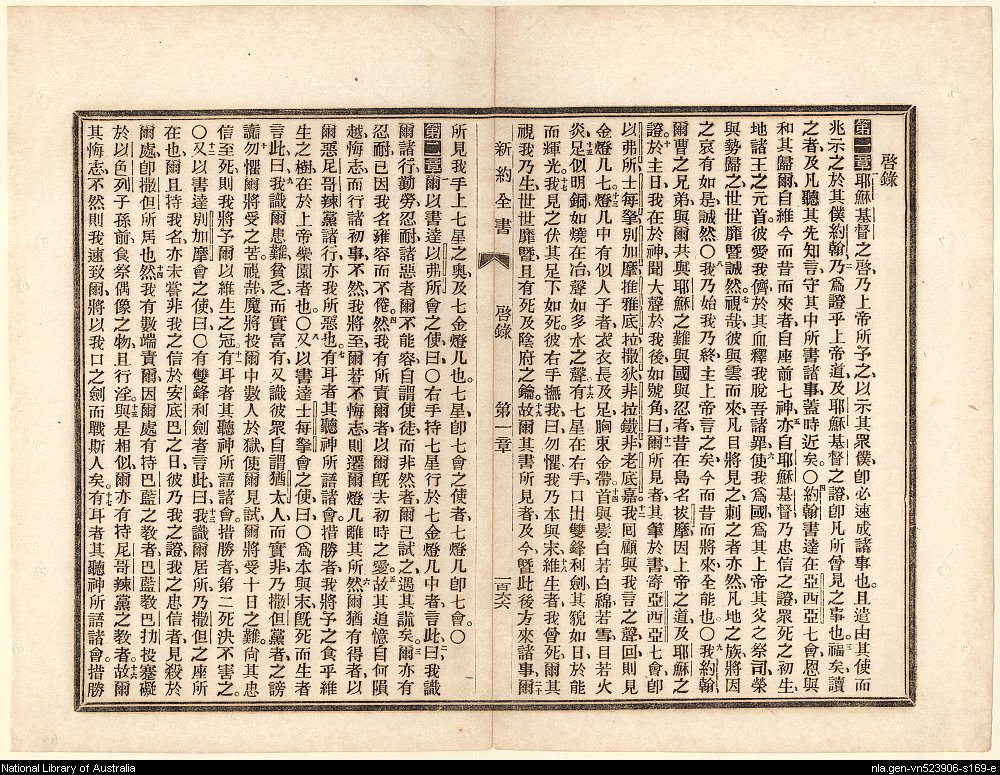 啓錄
第一章耶穌基督之啓、乃上帝所予之、以示其衆僕、卽必速成諸事也、且遣由其使而
兆示之於其僕約翰、乃爲證乎上帝道、及耶穌基督之證、卽凡所曾見之事也。福矣讀
之者、及凡聽其先知言、守其中所書諸事、蓋時近矣。〇約翰書達在亞西亞七會、恩與
和其歸爾、自維今而昔而來者、自座前七神、亦自耶穌基督、乃忠信之證、衆死之初生、
地諸王之元首。彼愛我儕、於其血釋我脫吾諸罪、使我爲國、爲其上帝其父之祭司、榮
與勢歸之、世世靡曁、誠然。視哉、彼與雲而來、凡目將見之、刺之者亦然、凡地之族、將因
之哀、有如是、誠然。〇我乃始、我乃終、主上帝言之矣、今而昔而將來、全能也。〇我約翰
爾曹之兄弟、與爾共與耶穌之難與國與忍者、昔在島名拔摩、因上帝之道、及耶穌之
證。於主日、我在於神、聞大聲於我後、如號角、曰、爾所見者、其筆於書、寄亞西亞七會、卽
以弗所、士每拏、別加摩、推雅底拉、撒狄、非拉鐵非、老底嘉、我回顧與我言之聲、回則見
金燈几七、燈几中有似人子者、衣衣長及足、胸束金帶、首與髮白、若白綿、若雪、目若火
炎、足似明銅、如燒在冶、聲如多水之聲、有七星在右手、口出雙鋒利劍、其貌如日於能
而輝光。我見之、伏其足下如死。彼右手撫我曰、勿懼、我乃本與末、維生者、我曾死爾其
視我乃生、世世靡曁、且有死及陰府之鑰。故爾其書所見者、及今、曁此後方來諸事、爾
新約全書 啓錄 第一章 一百六六
所見我手上七星之奥、及七金燈几也、七星卽七會之使者、七燈几卽七會。〇
第二章爾以書達以弗所會之使、曰、〇右手持七星、行於七金燈几中者、言此、曰、我識
爾諸行勤勞忍耐、諸惡者爾不能容、自謂使徒而非然者、爾已試之、遇其誑矣。爾亦有
忍耐、已因我名雍容而不倦。然我有所責爾者、以爾旣去初時之愛。故其追憶自何隕
越、悔志而行諸初事、不然我將至爾、若不悔志、則遷爾燈几離其所。然爾猶有得者、以
爾惡尼哥辣黨諸行、亦我所惡也。有耳者、其聽神所語諸會、措勝者、我將予之食乎維
生之樹、在於上帝樂園者也。〇又以書達士每拏會之使、曰、〇爲本與末、旣死而生者
言此、曰、我識爾患難貧乏、而實富有、又識彼衆自謂猶太人而實非、乃撒但黨者之謗
讟。勿懼爾將受之苦、視哉、魔將投爾中數人於獄、使爾見試、爾將受十日之難、尙其忠
信至死、則我將予爾以維生之冠。有耳者、其聽神所語諸會、措勝者、第二死決不害之。
〇又以書達別加摩會之使、曰、〇有雙鋒利劍者、言此、曰、我識爾居所、乃撒但之座所
在也、爾且持我名、亦未嘗非我之信、於安底巴之日、彼乃我之證、我之忠信者、見殺於
爾處、卽撒但所居也。然我有數端責爾、因爾處有持巴藍之教者、巴藍教巴扐投蹇礙
於以色列子孫前、食祭偶像之物、且行淫。與是相似、爾亦有持尼哥辣黨之教者。故爾
其悔志、不然則我速致爾、將以我口之劍而戰斯人矣。有耳者、其聽神所語諸會、措勝
National Library of Australia
nla.gen-vn523906-s169-e